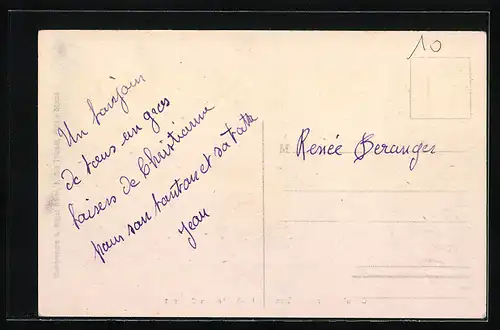 10
Un bonjour
de tous un gros
baisers de Christianne
pour son tonton et sa tata
Jean
M Renée Beranger